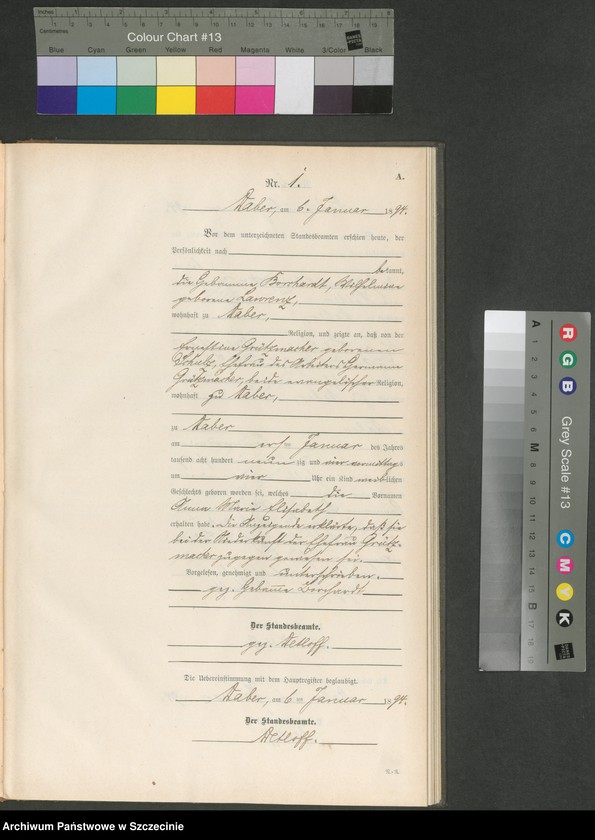 Colour Chart #13
Blue Cyan Green Yellow Red Magenta White 3/Color Black
Grey Scale #13
A
R
G
B
M
C
M
Y
B
K
A.
Nr. 1.
Naber, am 6. Januar 1894.
Vor dem unterzeichneten Standesbeamten erschien heute, der
Persönlichkeit nach
bekannt,
die Hebamme Borchardt, Wilhelmine
geborene Lawrenz,
wohnhaft zu Naber,
Religion, und zeigte an, daß von der
Ernestine Grützmacher geborenen
Schulz, Ehefrau des Arbeiters Hermann
Grützmacher, beide evangelischer Religion,
wohnhaft zu Naber,
zu Naber
am ersten Januar des Jahres
tausend acht hundert neunzig und vier vormittags
um vier Uhr ein Kind weiblichen
Geschlechts geboren worden sei, welches die Vornamen
Anna Marie Elisabeth
erhalten habe. Die Anzeigende erklärte, daß sie
bei der Niederkunft der Ehefrau Grütz-
macher zugegen gewesen sei.
Vorgelesen, genehmigt und unterschrieben.
gez. Hebamme Borchardt
Der Standesbeamte.
gez. Detloff.
Die Uebereinstimmung mit dem Hauptregister beglaubigt.
Naber, am 6ten Januar 1894.
Der Standesbeamte.
Detloff.
Archiwum Państwowe w Szczecinie